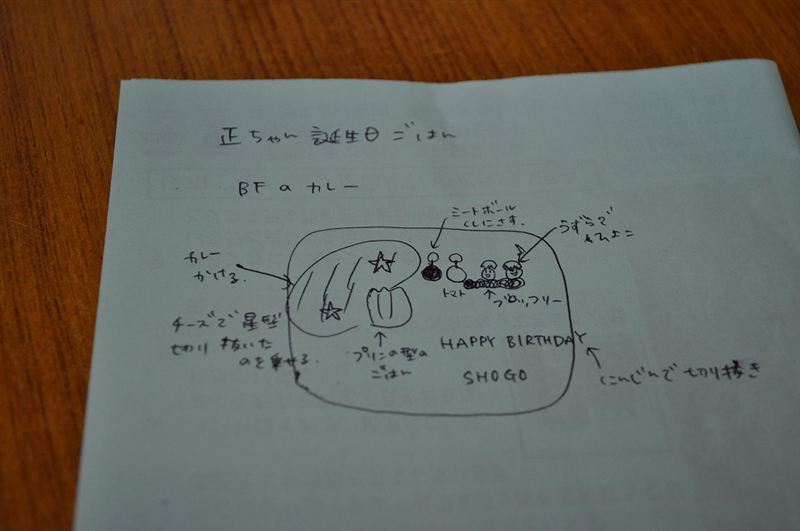 正ちゃん 誕生日ごはん
BFのカレー
ミートボール
くしにさす。
うずらで
ひよこ
カレー
かける。
トマト
ブロッコリー
チーズで星型
切り抜いた
のを乗せる。
プリンの型の
ごはん
HAPPY BIRTHDAY
SHOGO
にんじんで切り抜き